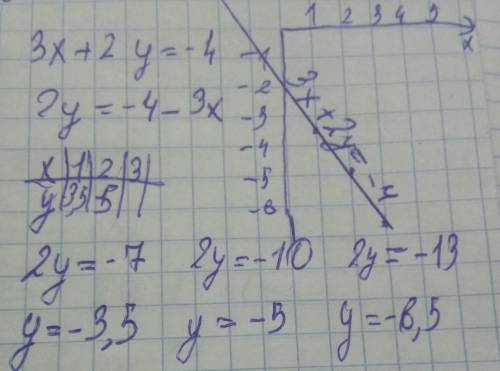 3x+2y=-4
2y=-4-3x
x|1|2|3|
y|3,5|-5| |
2y=-7 2y=-10 2y=-13
y=-3,5 y=-5 y=-6,5
1 2 3 4 5
x
-1
-2
-3
-4
-5
-6
3x+2y=-4